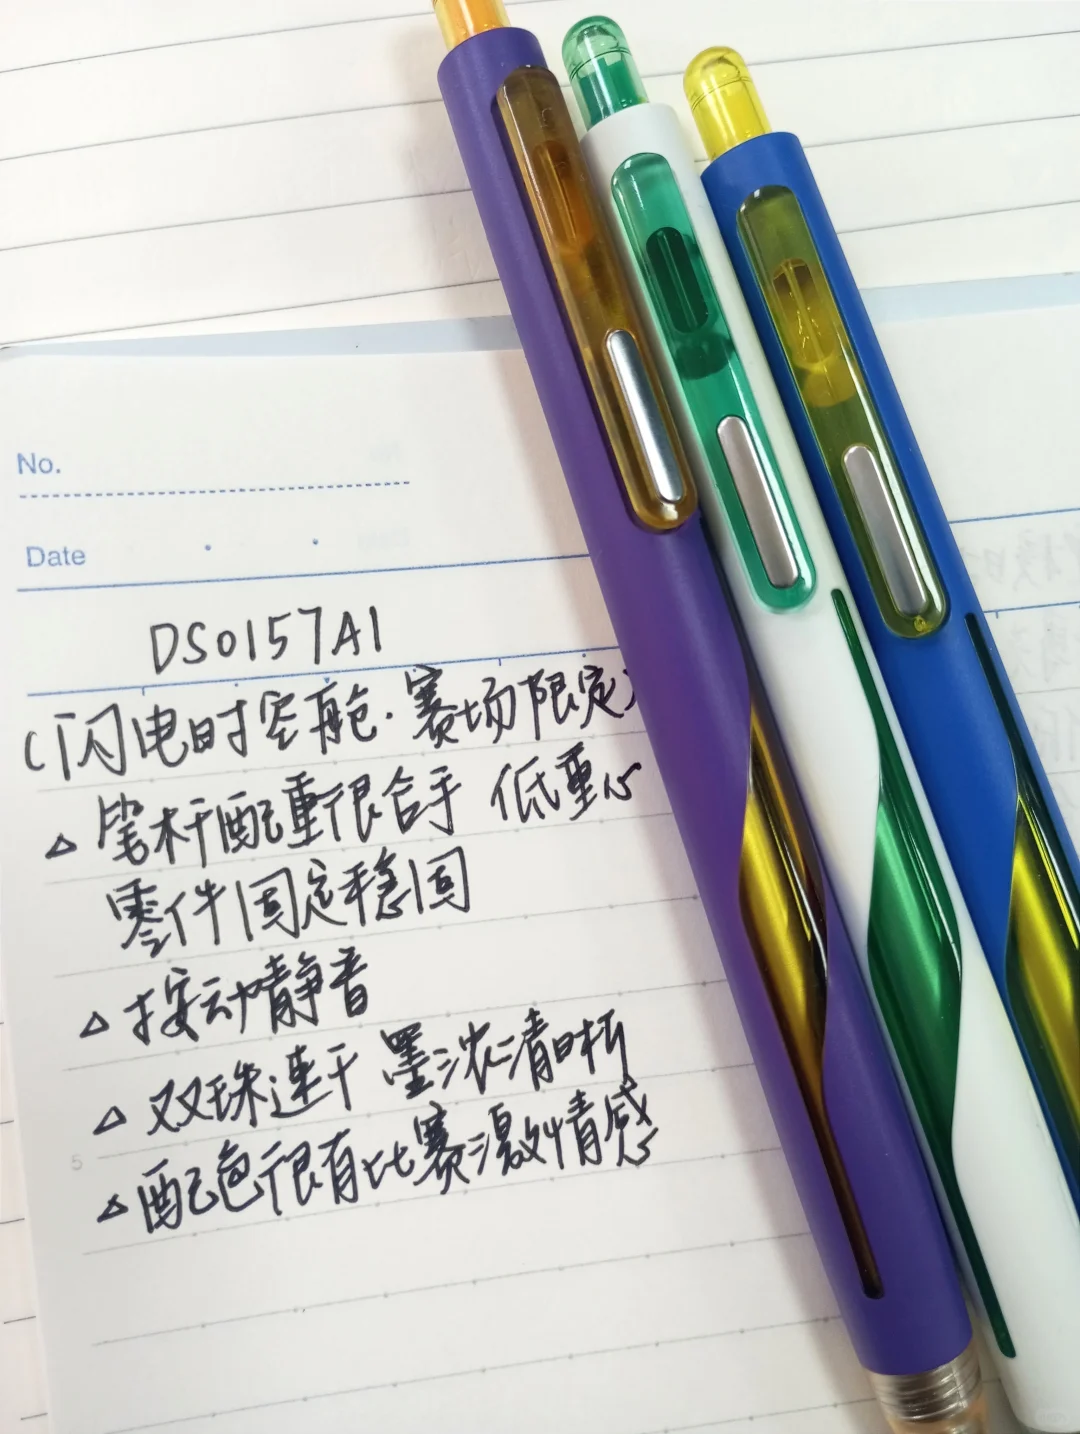 No.
Date
DS0157A1
(闪电时空舱·赛场限定
△ 笔杆配重很合手 低重心
零件固定稳固
△ 按动静音
△ 双珠速干 墨浓清晰
5
△ 配色很有比赛激情感